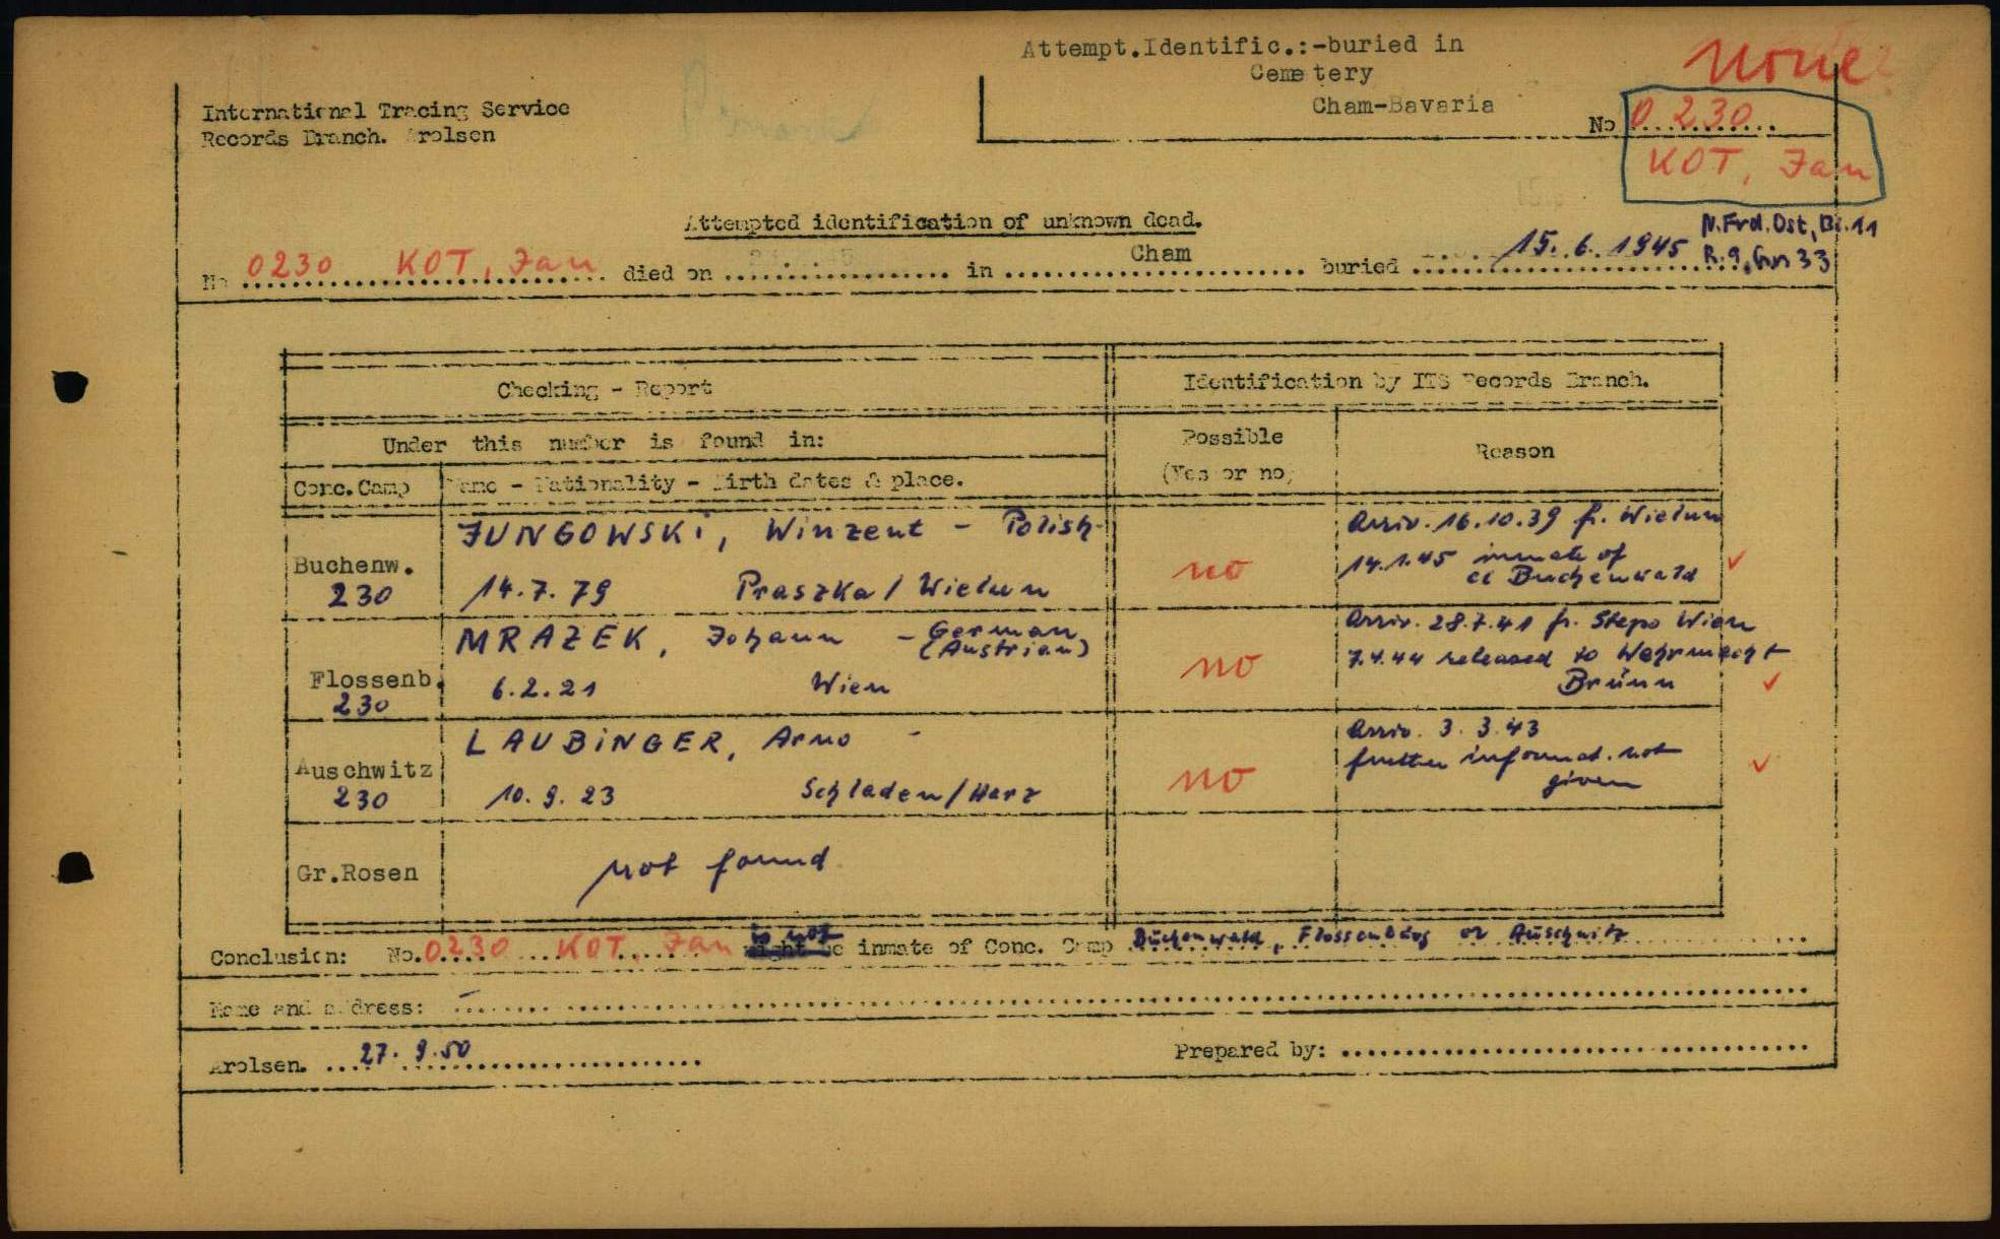 Attempt.Identific.:-buried in
Cemetery
Cham-Bavaria
None
International Tracing Service
Records Branch. Arolsen
No 0 230
KOT, Jan
Attempted identification of unknown dead.
N.Frd.Ost, Bl.11
R.9, Gr. 33
No 0230 KOT, Jan died on in Cham buried 15.6.1945
Checking - Report
Identification by ITS Records Branch.
Under this number is found in:
Possible
(Yes or no)
Reason
Conc.Camp
Name - Nationality - Birth dates & place.
Buchenw.
230
JUNGOWSKi, Winzent - Polish
14.7.79 Praszka / Wielun
no
Arriv. 16.10.39 fr. Wielun
14.1.45 inmate of
cc Buchenwald
Flossenb.
230
MRAZEK, Johann - German
(Austrian)
6.2.21 Wien
no
Arriv. 28.7.41 fr. Stapo Wien
7.4.44 released to Wehrmacht
Brünn
Auschwitz
230
LAUBiNGER, Arno -
10.9.23 Schladen/Harz
no
Arriv. 3.3.43
further informat. not
given
Gr.Rosen
not found
Conclusion: No. 0230 KOT, Jan is not inmate of Conc. Camp Buchenwald, Flossenbürg or Auschwitz
Name and address: -
Arolsen. 27.9.50
Prepared by: